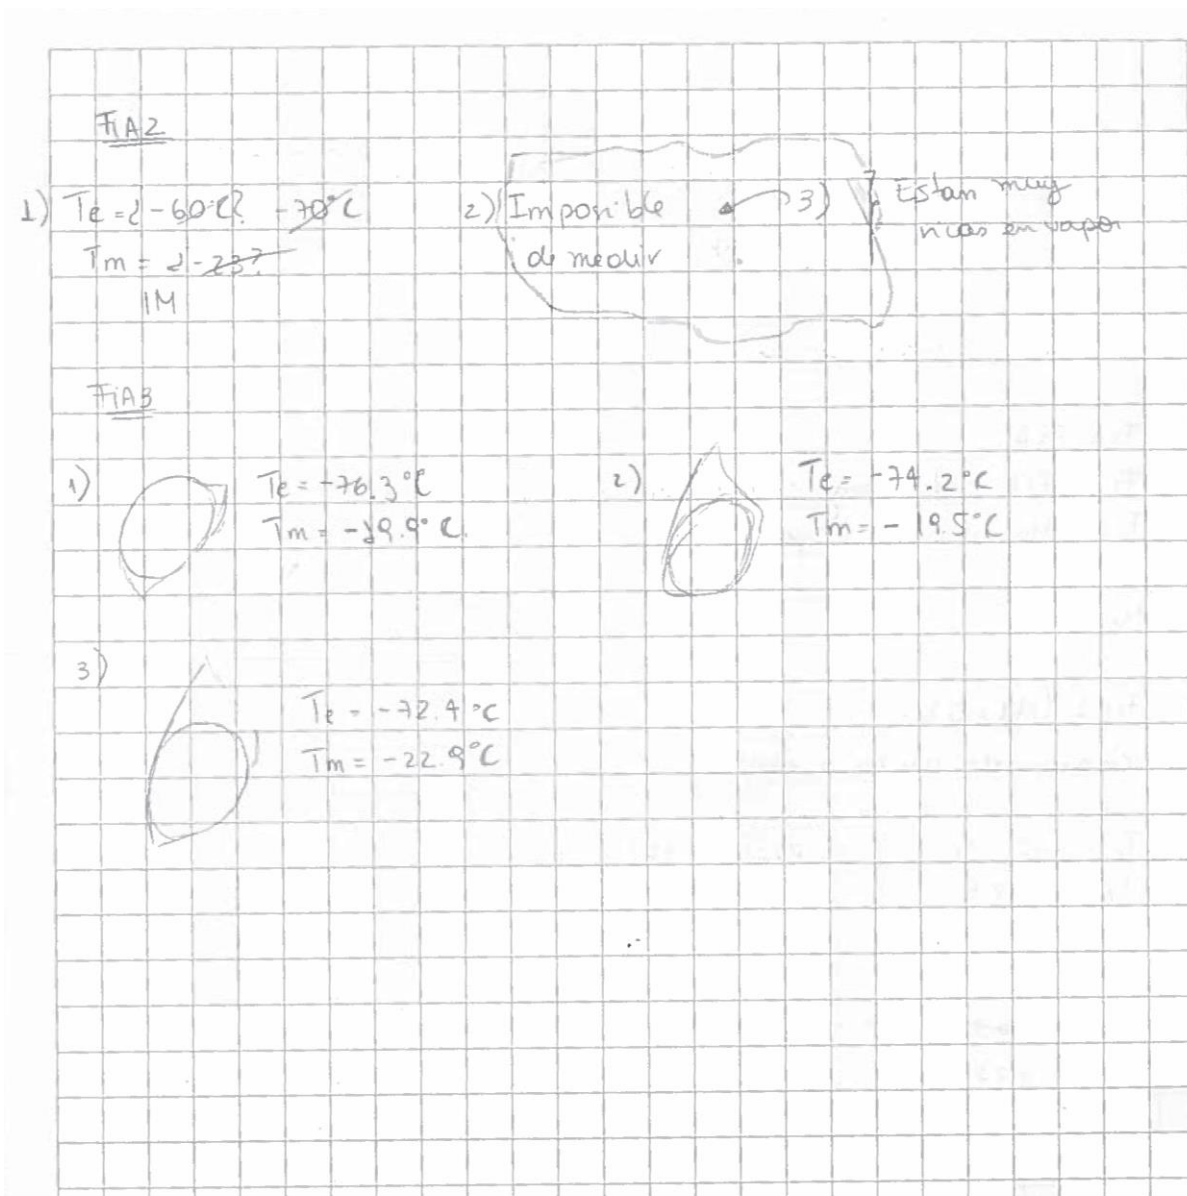 FIA2
1) Te = ¿-60°C? -70°C
Tm = ¿-23?
IM
2) Imposible
de medir
3)
Estan muy
ricas en vapor
FIA3
1)
Te = -76.3°C
Tm = -19.9°C
2)
Te = -74.2°C
Tm = -19.5°C
3)
Te = -72.4°C
Tm = -22.9°C